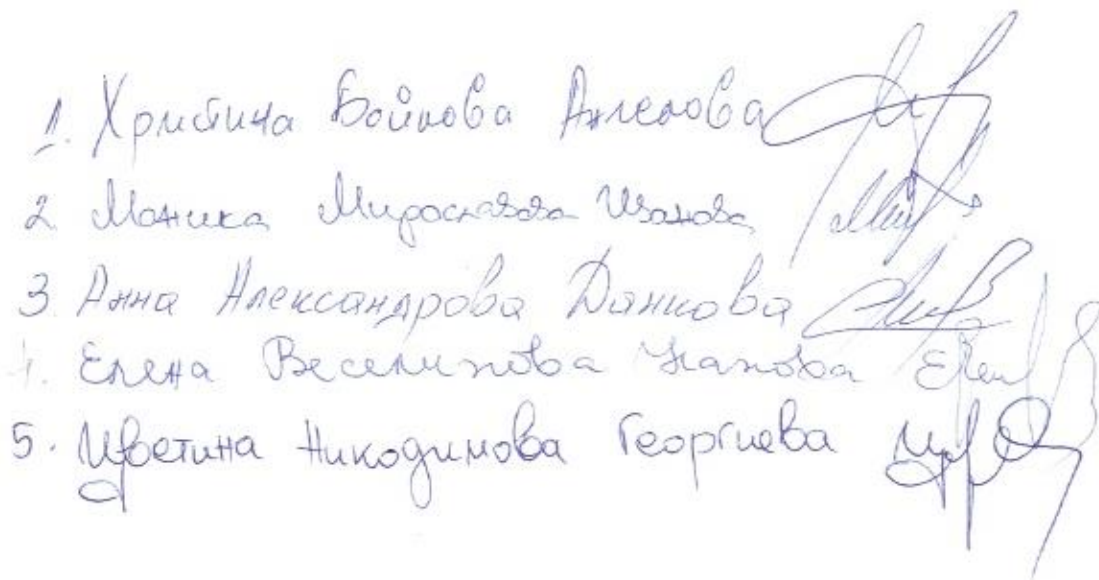 1. Христина Бойкова Ангелова
2 Моника Мирославова Иванова
3. Анна Александрова Данкова
4. Елена Веселинова
5. Цветина Никодимова Георгиева